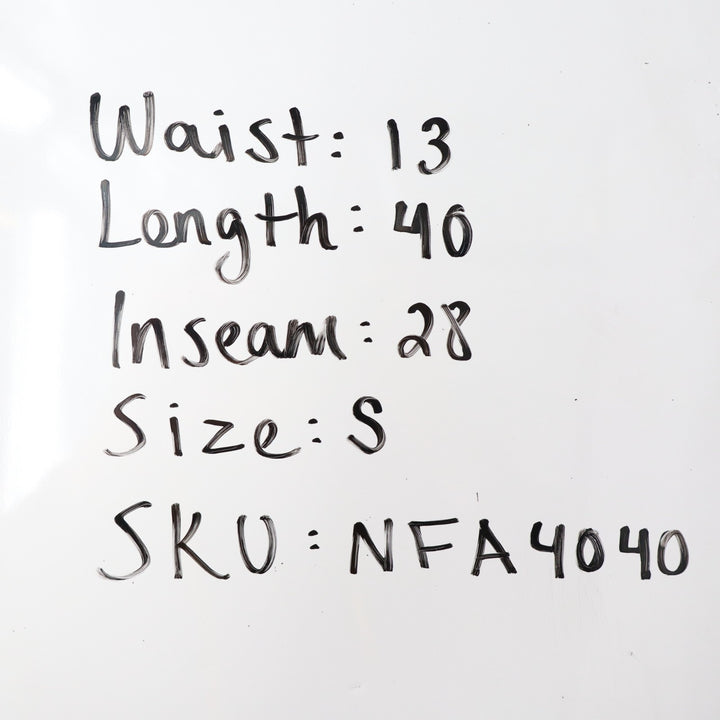 Waist: 13
Length: 40
Inseam: 28
Size: S
SKU: NFA4040